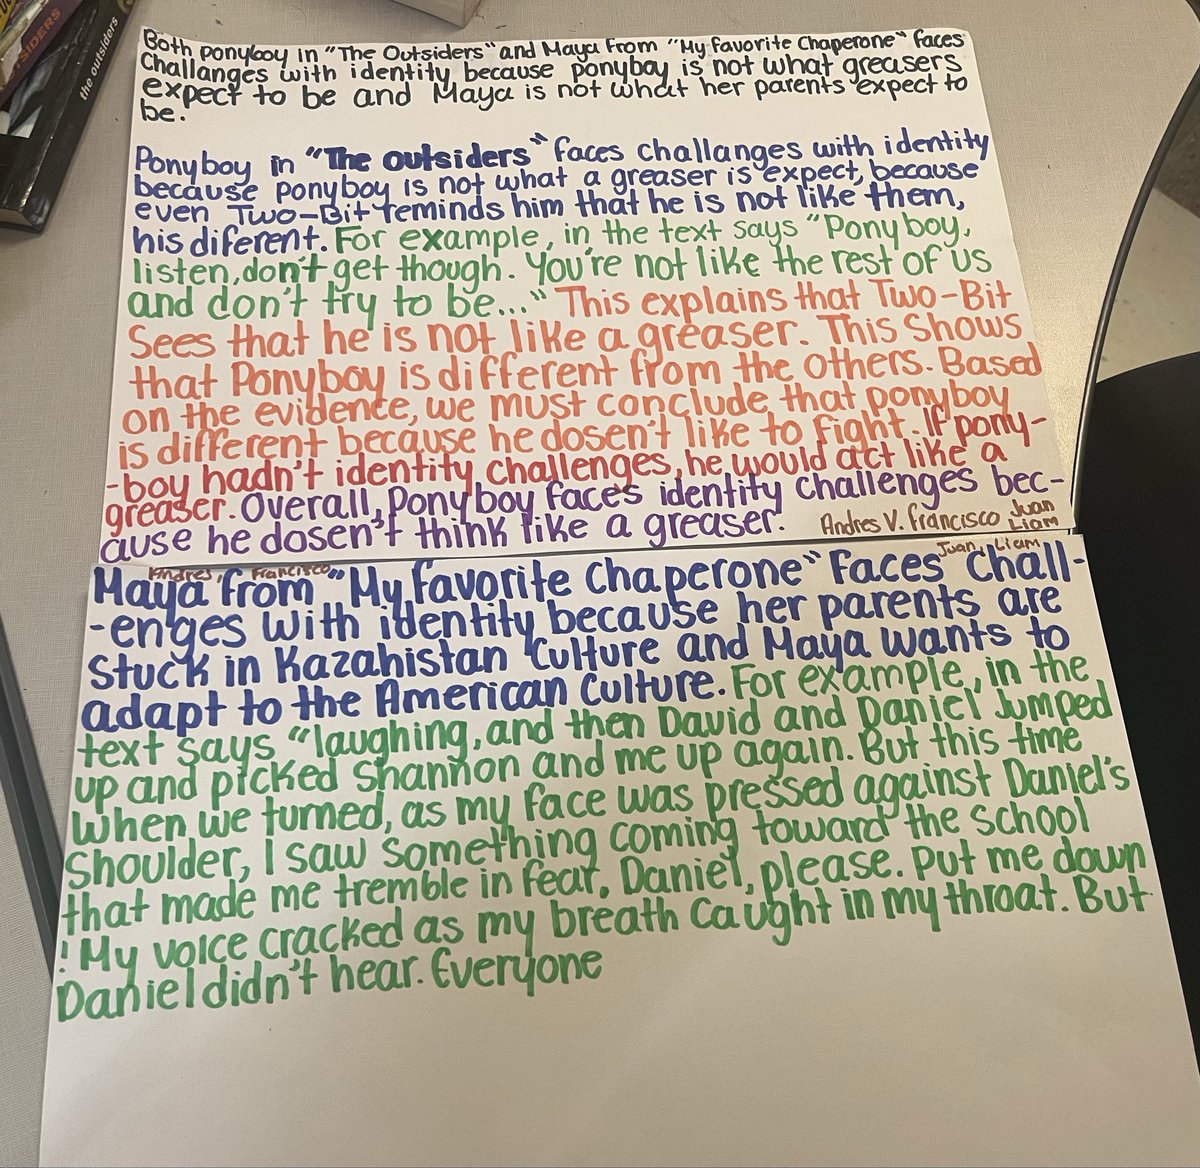 the outsiders
SIDERS
Both ponyboy in "The Outsiders" and Maya from "My favorite Chaperone" faces
Challanges with identity because ponyboy is not what greasers
expect to be and Maya is not what her parents expect to
be.
Ponyboy in "The outsiders" faces challanges with identity
because ponyboy is not what a greaser is expect, because
even Two-Bit reminds him that he is not like them,
his diferent. For example, in the text says "Ponyboy,
listen, don't get though. You're not like the rest of us
and don't try to be..." This explains that Two-Bit
Sees that he is not like a greaser. This Shows
that Ponyboy is different from the others. Based
on the evidence, we must conclude that ponyboy
is different because he dosen't like to fight. If pony-
-boy hadn't identity challenges, he would act like a
greaser. Overall, Ponyboy faces identity challenges bec-
ause he dosen't think like a greaser. Andres V. francisco Juan
Liam
Andres, Francisco Juan, Liam
Maya from "My favorite Chaperone" Faces Chall-
-enges with identity because her parents are
Stuck in Kazahistan Culture and Maya wants to
adapt to the American Culture. For example, in the
text says "laughing, and then David and Daniel Jumped
up and picked Shannon and me up again. But this time
when we turned, as my face was pressed against Daniel's
Shoulder, I saw something coming toward the school
that made me tremble in fear. Daniel, please. Put me down
! My voice cracked as my breath caught in my throat. But
Daniel didn't hear. Everyone